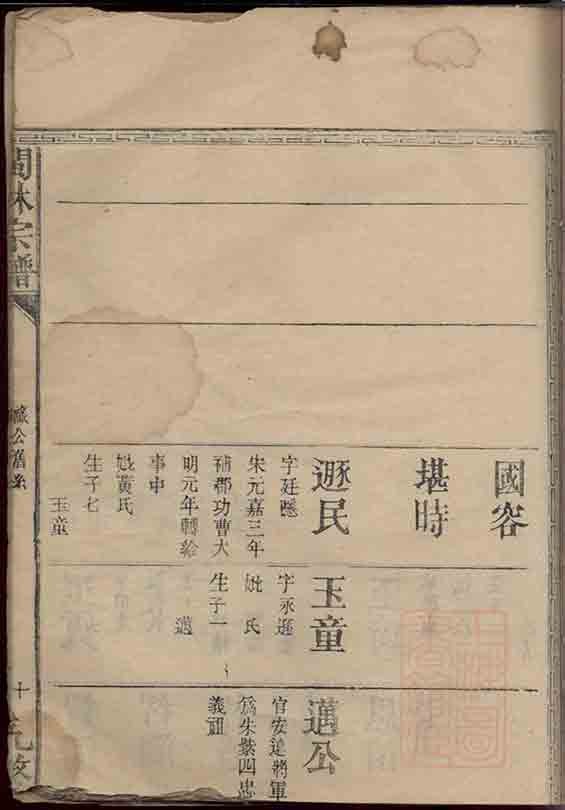 國容
堪時
遯民
字廷隱
宋元嘉三年
補郡功曹大
明元年轉給
事中
妣黃氏
生子七
玉童
玉童
字永遜
妣氏
生子一
邁
邁公
官安遠將軍
為朱紫四忠
義祖
林宗譜
祿公舊系
十